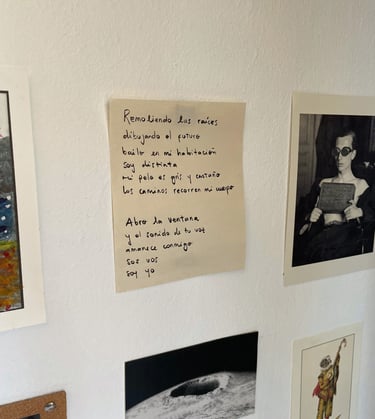 Removiendo las raíces
dibujando el futuro
bailo en mi habitación
soy distinta
mi pelo es gris y castaño
los caminos recorren mi cuerpo
Abro la ventana
y el sonido de tu voz
amanece conmigo
sos vos
soy yo